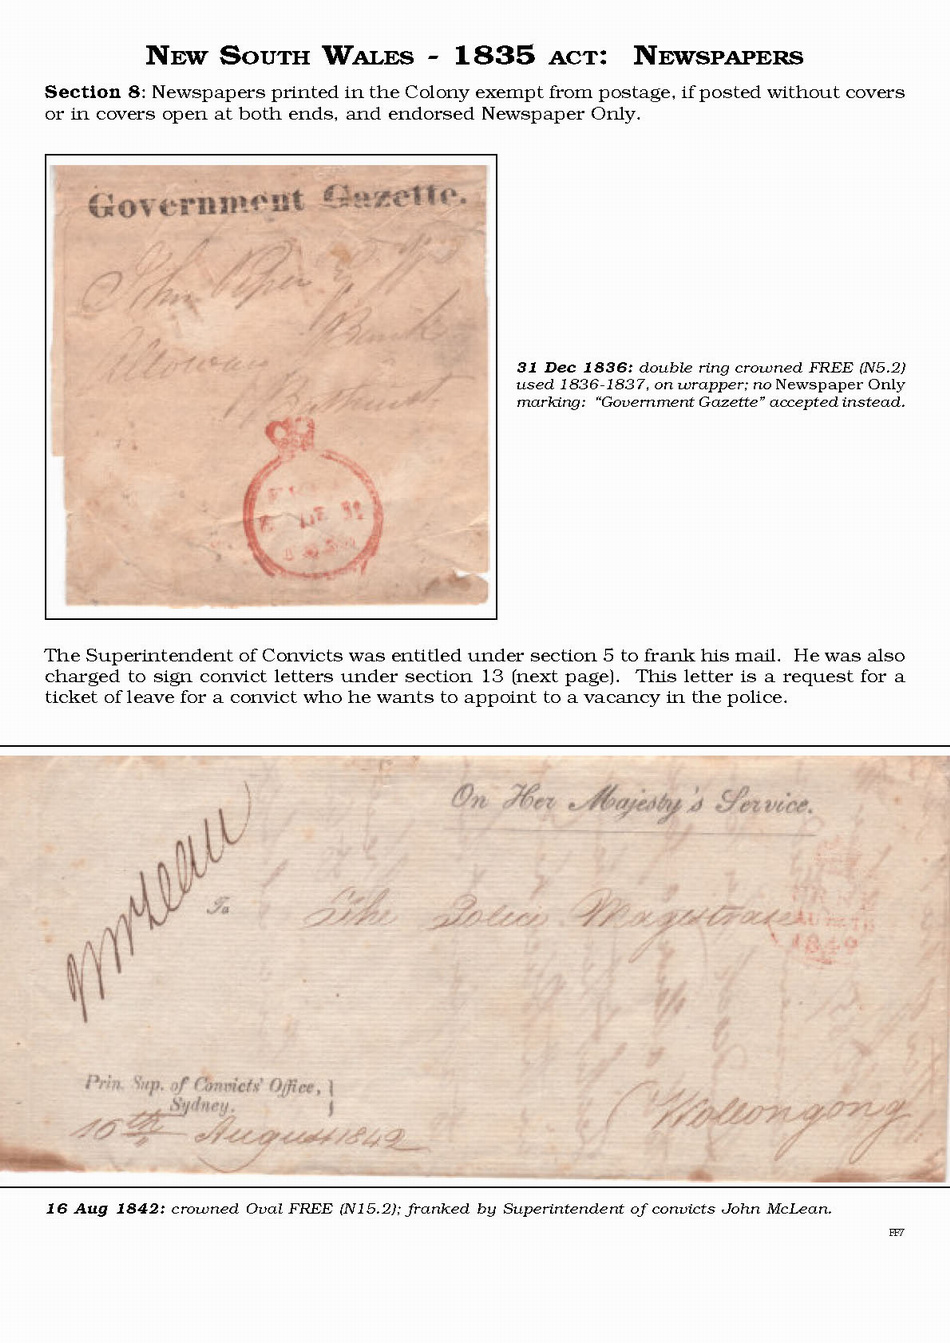 NEW SOUTH WALES - 1835 ACT: NEWSPAPERS
Section 8: Newspapers printed in the Colony exempt from postage, if posted without covers
or in covers open at both ends, and endorsed Newspaper Only.
Government Gazette.
John Piper
Bank
Bathurst
31 Dec 1836: double ring crowned FREE (N5.2)
used 1836-1837, on wrapper; no Newspaper Only
marking: “Government Gazette” accepted instead.
The Superintendent of Convicts was entitled under section 5 to frank his mail. He was also
charged to sign convict letters under section 13 (next page). This letter is a request for a
ticket of leave for a convict who he wants to appoint to a vacancy in the police.
On Her Majesty's Service.
McLean
To The Police Magistrate
1842
Prin. Sup. of Convicts' Office,
Sydney.
16th August 1842
Wollongong
16 Aug 1842: crowned Oval FREE (N15.2); franked by Superintendent of convicts John McLean.
FF7